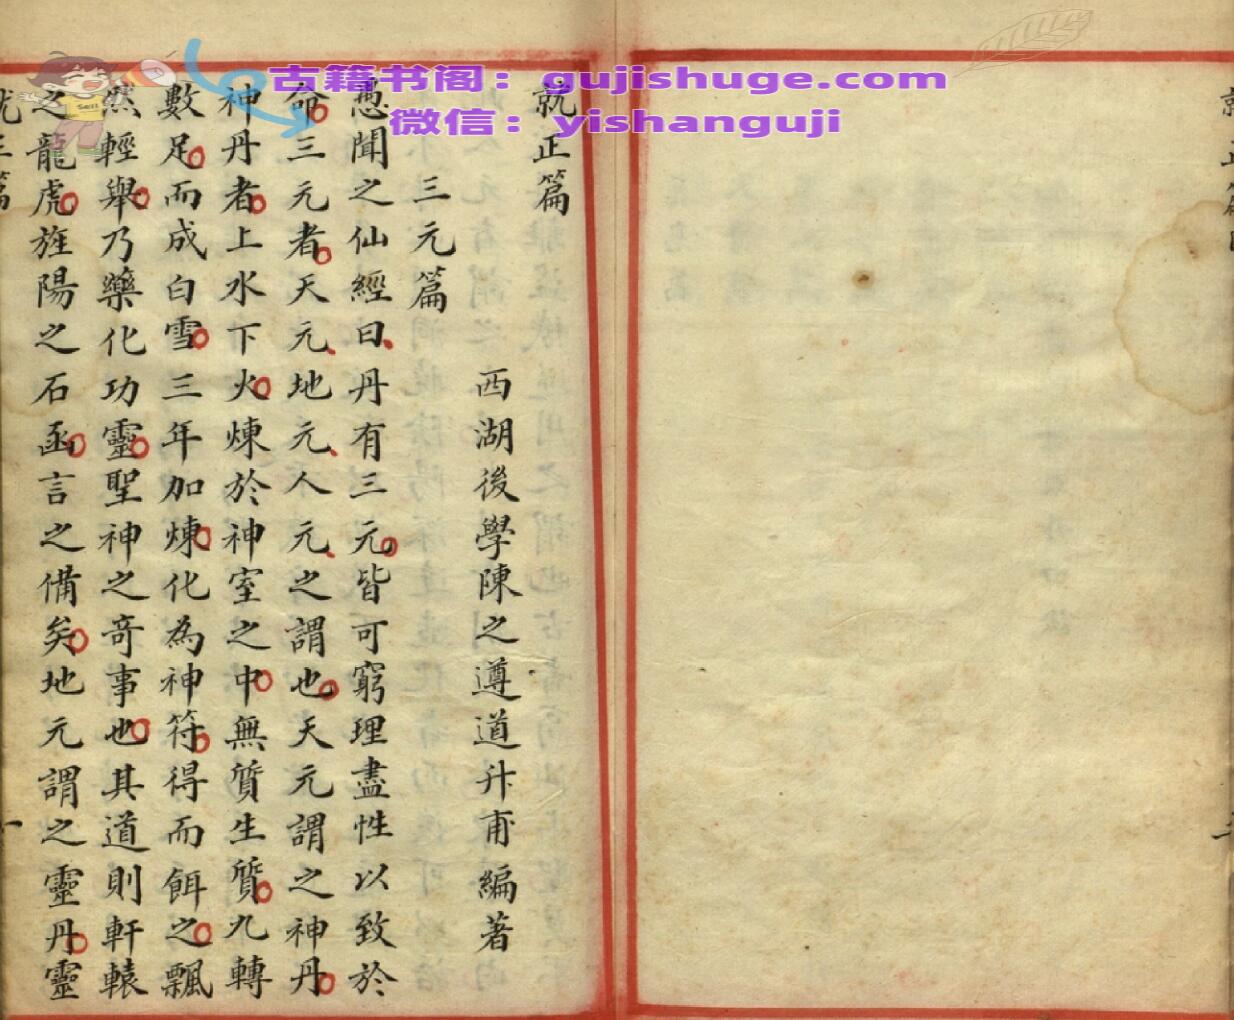 古籍书阁：gujishuge.com
微信：yishanguji
就正篇
三元篇
西湖後學陳之遵道升甫編著
愚聞之仙經曰丹有三元皆可窮理盡性以致於
命三元者天元地元人元之謂也天元謂之神丹
神丹者上水下火煉於神室之中無質生質九轉
數足而成白雪三年加煉化為神符得而餌之飄
然輕舉乃藥化功靈聖神之奇事也其道則軒轅
之龍虎旌陽之石函言之備矣地元謂之靈丹靈
一